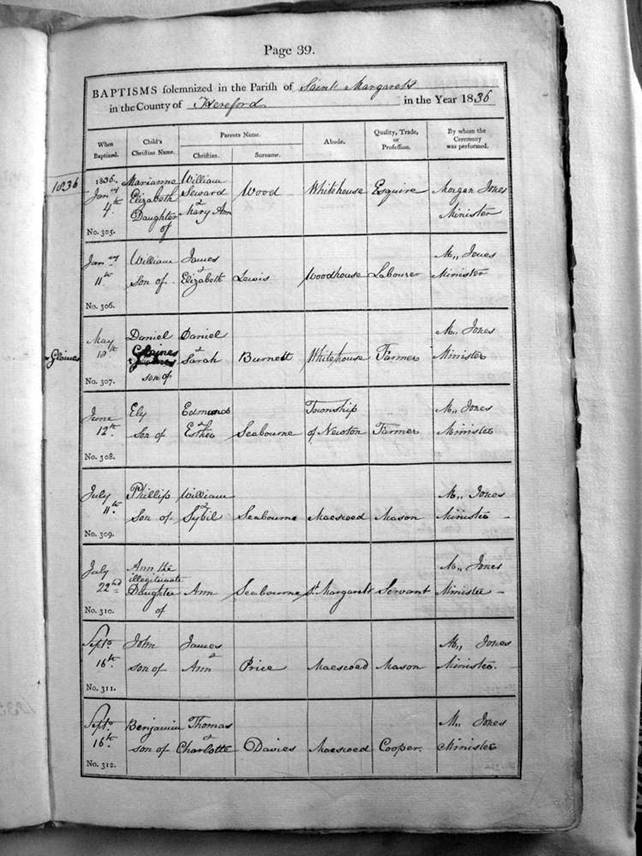 Page 39.
BAPTISMS solemnized in the Parish of Saint Margarets
in the County of Hereford in the Year 1836
When Baptized.
Child's Christian Name.
Parents Name.
Christian.
Surname.
Abode.
Quality, Trade, or Profession.
By whom the Ceremony was performed.
1836
1836. Marianne William
Jany Elizabeth Seward Wood Whitehouse Esquire Morgan Jones
4th Daughter & Mary Ann Minister
of
No. 305.
Jany William James M,, Jones
11th Son of & Elizabeth Lewis Woodhouse Labourer Minister
No. 306.
May Daniel Daniel M,, Jones
10th Glaines & Sarah Burnett Whitehouse Farmer Minister
Glaines
son of
No. 307.
June Ely Edmund Township M,, Jones
12th Son of & Esther Seabourne of Newton Farmer Minister
No. 308.
July Phillip William M,, Jones
11th Son of & Sybil Seabourne Maescoed Mason Minister
No. 309.
July Ann the M,, Jones
illegitimate
22nd Daughter Ann Seabourne St Margarets Servant Minister
of
No. 310.
Septr John James M,, Jones
16th son of & Ann Price Maescoed Mason Minister
No. 311.
Septr Benjamin Thomas M,, Jones
16th son of & Charlotte Davies Maescoed Cooper. Minister
No. 312.